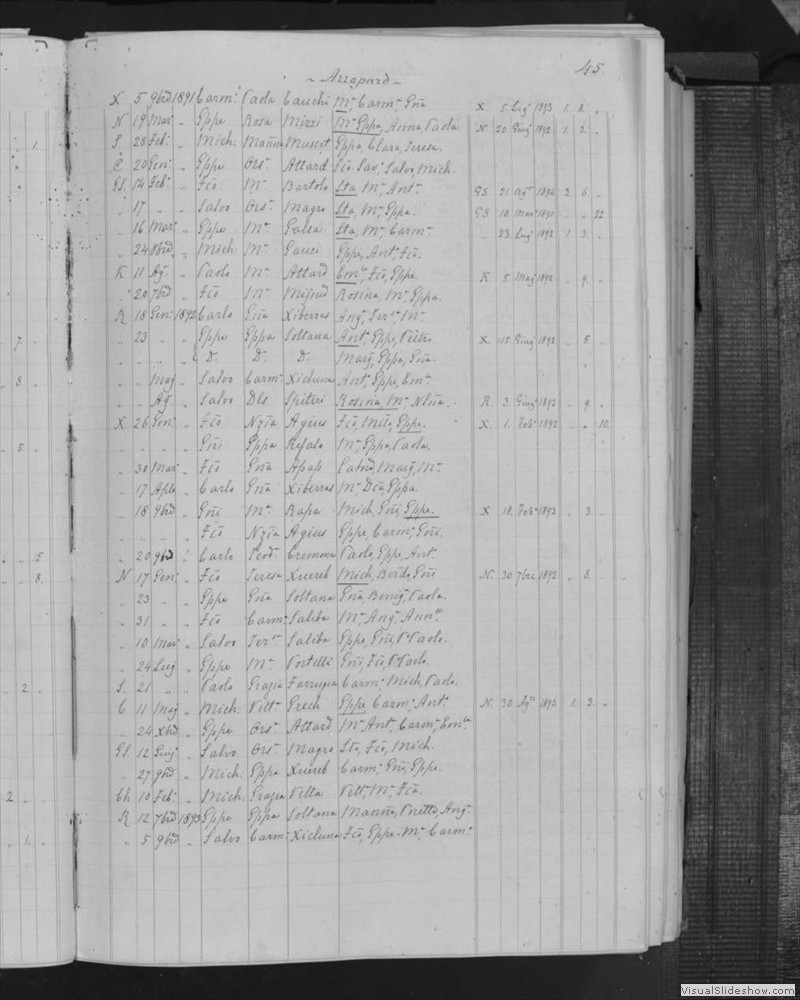 45
Azzopard
X 5 9brd 1891 Carm: Paola Cauchi Ma Carma Gña X 5 Lug 1893 1. 8. "
N 19 Mar: " Gppe Rosa Mizzi Ma Gppa, Anna, Paola N 20 Giug 1892 1. 3. "
S. 28 Feb: " Mich: Manña Muscat Gppa Clara, Teresa. 1.
C 20 Gen: " Gppe Ors: Attard Fco. Sav: Salvo, Mich.
GS. 14 Feb: " Fco Ma Bartolo Sta, Ma Anta GS. 21 Agto 1894 3. 6. "
" 17 " " Salvo Ors: Magro Sta, Ma Gppa. GS 18 Mar 1891 " " 22
" 16 Mar: " Gppe Ma Galea Sta, Ma Carma " 23 Lug 1892 1. 3. "
" 24 8brd " Mich: Ma Gauci Gppe, Ant, Fco.
K 11 Ag. " Paolo Ma Attard Ema Fco, Gppe. K 5 Mag 1892 " 9. "
" 20 7brd " Fco Ma Mifsud Rosina, Ma Gppa.
R 18 Gen: 1892 Carlo Gña Xiberras Ang, Tersa Ma
" 23 " " Gppe Gppa Soltana Ant, Gppe, Pietro X 15 Giug 1892 " 5. " 7.
" " " " D. D. D. Marg, Gppa, Gña
" " Mag " Salvo Carm: Xicluna Ant, Gppe, Ema 8.
" " Ag. " Salvo Dls Spiteri Rosina, Ma Nlña. R 3 Giug 1893 " 9. "
X 26 Gen: " Fco Nzia Agius Fco, Gppe. X 1. Feb 1892 " " 10.
" " " " Gni Gppa Refalo Ma Gppa, Paola. 5
" 30 Mar: " Fco Gña Apap Catna, Marg, Ma
" 17 Aple " Carlo Gña Xiberras Ma Gppa.
" 18 9brd " Gni Ma Rapa Mich, Gni, Gppe. X 18. Feb 1893 " 3. "
" " " Fco Nzia Agius Gppe, Carm, Gni.
" 20 9brd " Carlo Teod: Cremona Paolo, Gppe, Ant. 15
N 17 Gen: " Fco Teresa Xuereb Mich, Gni N. 30 7bre 1892 " 8. 8.
" 23 " " Gppe Gña Soltana Gña Benig, Paola.
" 31 " " Fco Carm: Saliba Ma Ang, Anna
" 10 Mar " Salvo Tersa Saliba Gppe, Gni, Po Paolo.
" 24 Lug " Gppe Ma Portelli Gni, Fco, Pо Paolo.
S. 21 " " Paolo Grazia Farrugia Carm: Mich, Paolo. 2.
C 11 Mag " Mich: Vitta Grech Gppe Carm, Ant. N. 30 Agto 1893 1. 3. "
" 24 Xbrd " Gppe Ors: Attard Ma Ant, Carm, Ema
GS. 12 Giug " Salvo Ors: Magro Sta, Fco, Mich.
" 27 9brd " Mich: Gppa Xuereb Carm: Gni, Gppe.
Ch 10 Feb: " Mich: Grazia Vella Vitta Ma Fca. 2.
R 12 7brd 1893 Gppe Gppa Soltana Manña, Ang.
" 5 9brd " Salvo Carm: Xicluna Fco, Gppe, Ma, Carm. 1.
VisualSlideshow.com